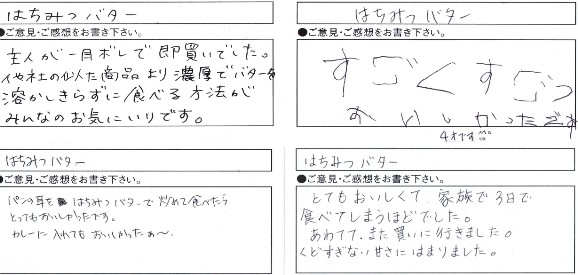 はちみつバター
●ご意見・ご感想をお書き下さい。
主人が一目ボレで即買いでした。
他社の似た商品より濃厚でバターを
溶かしきらずに食べる方法が
みんなのお気にいりです。
はちみつバター
●ご意見・ご感想をお書き下さい。
すごくすごっ
おいしかったです
4才です
はちみつバター
●ご意見・ご感想をお書き下さい。
パンの耳を はちみつバターで炒めて食べたら
とってもおいしかったです。
カレーに入れても おいしかったぁ〜。
はちみつバター
●ご意見・ご感想をお書き下さい。
とてもおいしくて、家族で3日で
食べてしまうほどでした。
あわてて、また買いに行きました。
くどすぎない甘さにはまりました。